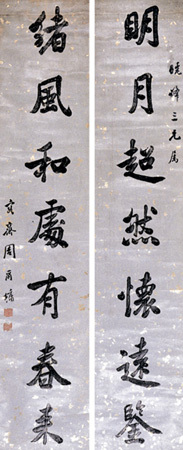 曉峰三兄屬
明月超然懷遠鑒
緒風和處有春來
容齋周爾墉